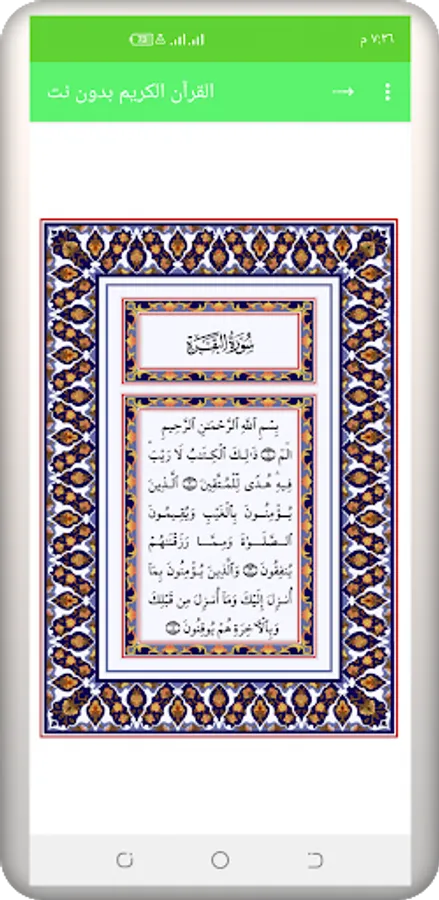 ٧:٢٦ م
73
القرآن الكريم بدون نت
سُورَةُ البَقَرَةِ
بِسْمِ ٱللَّهِ ٱلرَّحْمَٰنِ ٱلرَّحِيمِ
الٓمٓ ۝ ذَٰلِكَ ٱلْكِتَٰبُ لَا رَيْبَ ۛ
فِيهِ ۛ هُدًى لِّلْمُتَّقِينَ ۝ ٱلَّذِينَ
يُؤْمِنُونَ بِٱلْغَيْبِ وَيُقِيمُونَ
ٱلصَّلَوٰةَ وَمِمَّا رَزَقْنَٰهُمْ
يُنفِقُونَ ۝ وَٱلَّذِينَ يُؤْمِنُونَ بِمَآ
أُنزِلَ إِلَيْكَ وَمَآ أُنزِلَ مِن قَبْلِكَ
وَبِٱلْءَاخِرَةِ هُمْ يُوقِنُونَ ۝